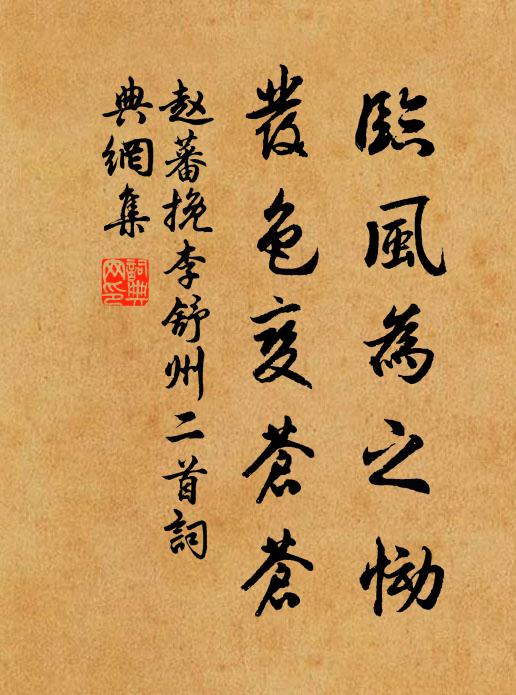 臨風為之慟
發色變蒼蒼
趙蕃挽李舒州二首詞
典網集
詞典
网印